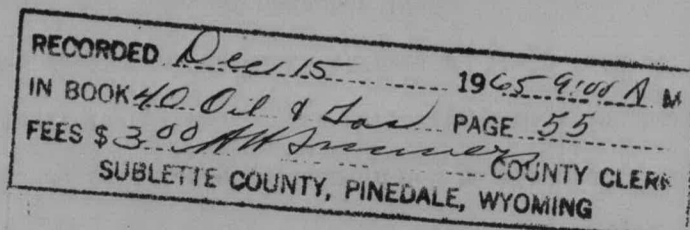 RECORDED Dec 15 1965 9:00 A M
IN BOOK 40 Oil & Gas PAGE 55
FEES $ 3.00 COUNTY CLERK
SUBLETTE COUNTY, PINEDALE, WYOMING